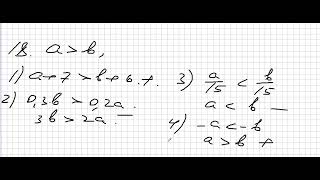 18. a > b,
1) a + 7 > b + 6. +.
2) 0,3b > 0,2a
3b > 2a. —
3) a/15 < b/15
a < b —
4) -a < -b
a > b +